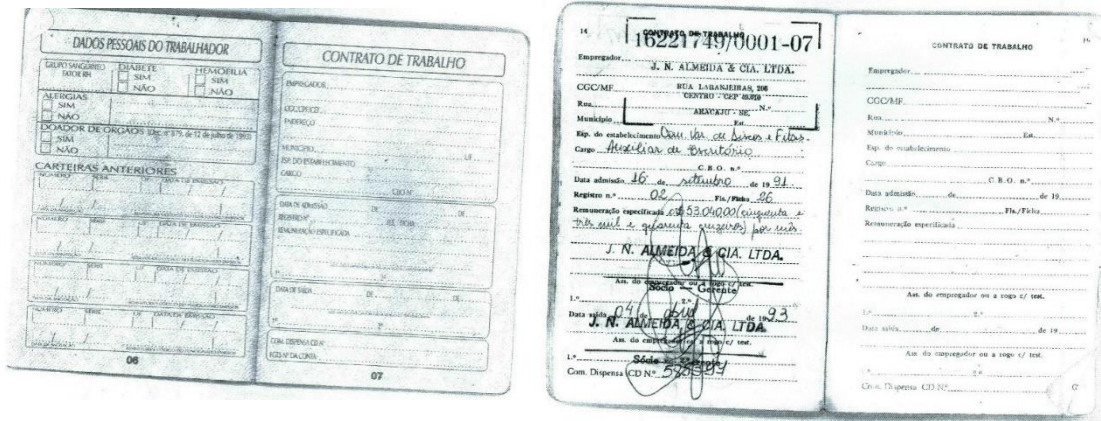 DADOS PESSOAIS DO TRABALHADOR
GRUPO SANGUÍNEO
FATOR RH
DIABETE
SIM
NÃO
HEMOFILIA
SIM
NÃO
ALERGIAS
SIM
NÃO
DOADOR DE ÓRGÃOS (Dec. nº 879, de 12 de julho de 1993)
SIM
NÃO
CARTEIRAS ANTERIORES
NÚMERO SÉRIE UF DATA DE EMISSÃO
NÚMERO SÉRIE UF DATA DE EMISSÃO
NÚMERO SÉRIE UF DATA DE EMISSÃO
NÚMERO SÉRIE UF DATA DE EMISSÃO
06
CONTRATO DE TRABALHO
EMPREGADOR
ENDEREÇO
MUNICÍPIO UF
ESP. DO ESTABELECIMENTO
CARGO
CBO Nº
DATA DE ADMISSÃO DE DE
REGISTRO Nº FLS. / FICHA
REMUNERAÇÃO ESPECIFICADA
DATA DE SAÍDA DE DE
COM. DISPENSA CD Nº
FGTS Nº DA CONTA
07
16 CONTRATO DE TRABALHO
16221749/0001-07
Empregador
J. N. ALMEIDA & CIA. LTDA.
CGC/MF
RUA LARANJEIRAS, 206
CENTRO - CEP
Rua N.º
ARACAJU - SE.
Município Est.
Esp. do estabelecimento Com. Var. de Discos e Fitas
Cargo Auxiliar de Escritório
C. B. O. n.º
Data admissão 16 de setembro de 19 91
Registro n.º 02 Fls./Ficha 26
Remuneração especificada 53.040,00 (cinquenta e
três mil e quarenta cruzeiros) por mês
J. N. ALMEIDA & CIA. LTDA.
Ass. do empregador ou a rogo c/ test.
Sócio — Gerente
1.º 2.º
Data saída 04 de de 19 93
J. N. ALMEIDA & CIA. LTDA.
Ass. do empregador ou a rogo c/ test.
1.º Sócio — Gerente
Com. Dispensa CD N.º
CONTRATO DE TRABALHO
Empregador
CGC/MF
Rua N.º
Município Est.
Esp. do estabelecimento
Cargo
C. B. O. n.º
Data admissão de de 19
Registro n.º Fls./Ficha
Remuneração especificada
Ass. do empregador ou a rogo c/ test.
1.º 2.º
Data saída de de 19
Ass. do empregador ou a rogo c/ test.
2.º
Com. Dispensa CD N.º